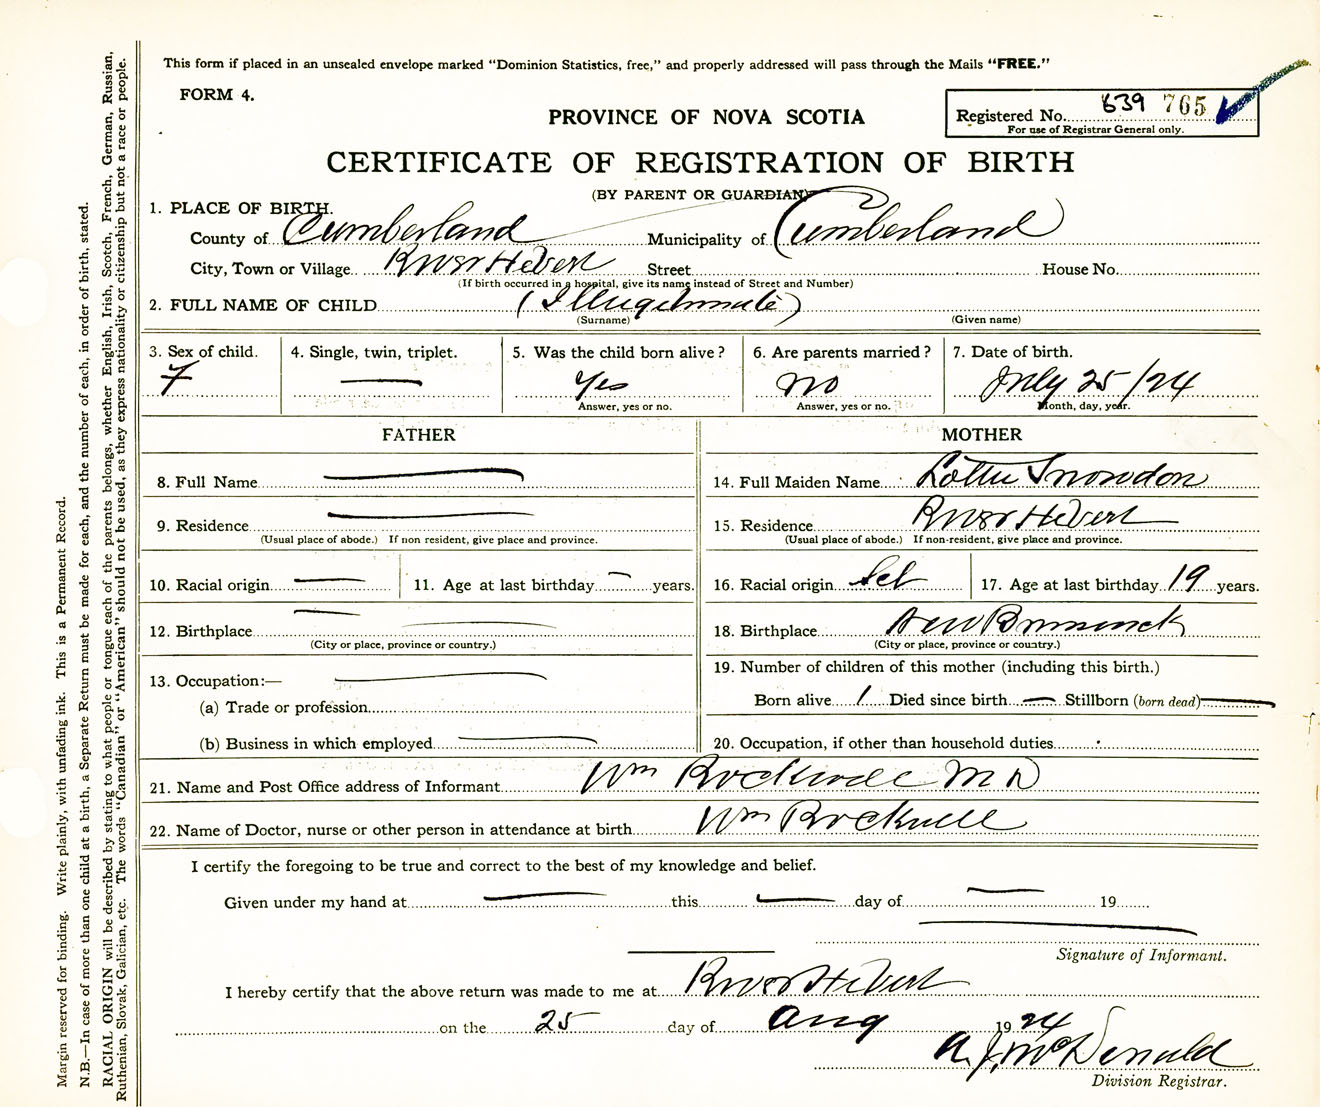 This form if placed in an unsealed envelope marked "Dominion Statistics, free," and properly addressed will pass through the Mails "FREE."
FORM 4.
PROVINCE OF NOVA SCOTIA
Registered No. 639 765
For use of Registrar General only.
CERTIFICATE OF REGISTRATION OF BIRTH
(BY PARENT OR GUARDIAN)
1. PLACE OF BIRTH.
County of Cumberland Municipality of Cumberland
City, Town or Village River Hebert Street House No.
(If birth occurred in a hospital, give its name instead of Street and Number)
2. FULL NAME OF CHILD (Illegitimate)
(Surname) (Given name)
3. Sex of child. 4. Single, twin, triplet. 5. Was the child born alive? 6. Are parents married? 7. Date of birth.
F — Yes No July 25/24
Answer, yes or no. Answer, yes or no. Month, day, year.
FATHER MOTHER
8. Full Name — 14. Full Maiden Name Lottie Snowdon
9. Residence — 15. Residence River Hebert
(Usual place of abode.) If non resident, give place and province. (Usual place of abode.) If non-resident, give place and province.
10. Racial origin — 11. Age at last birthday — years. 16. Racial origin 17. Age at last birthday 19 years.
12. Birthplace — 18. Birthplace New Brunswick
(City or place, province or country.) (City or place, province or country.)
19. Number of children of this mother (including this birth.)
13. Occupation:— —
(a) Trade or profession Born alive 1 Died since birth — Stillborn (born dead) —
(b) Business in which employed — 20. Occupation, if other than household duties
21. Name and Post Office address of Informant Wm Rockwell M D
22. Name of Doctor, nurse or other person in attendance at birth Wm Rockwell
I certify the foregoing to be true and correct to the best of my knowledge and belief.
Given under my hand at — this — day of — 19
Signature of Informant.
I hereby certify that the above return was made to me at River Hebert
on the 25 day of Aug 1924
A. J. McDonald
Division Registrar.
Margin reserved for binding. Write plainly, with unfading ink. This is a Permanent Record.
N.B.—In case of more than one child at a birth, a Separate Return must be made for each, and the number of each, in order of birth, stated.
RACIAL ORIGIN will be described by stating to what people or tongue each of the parents belongs, whether English, Irish, Scotch, French, German, Russian,
Ruthenian, Slovak, Galician, etc. The words "Canadian" or "American" should not be used, as they express nationality or citizenship but not a race or people.